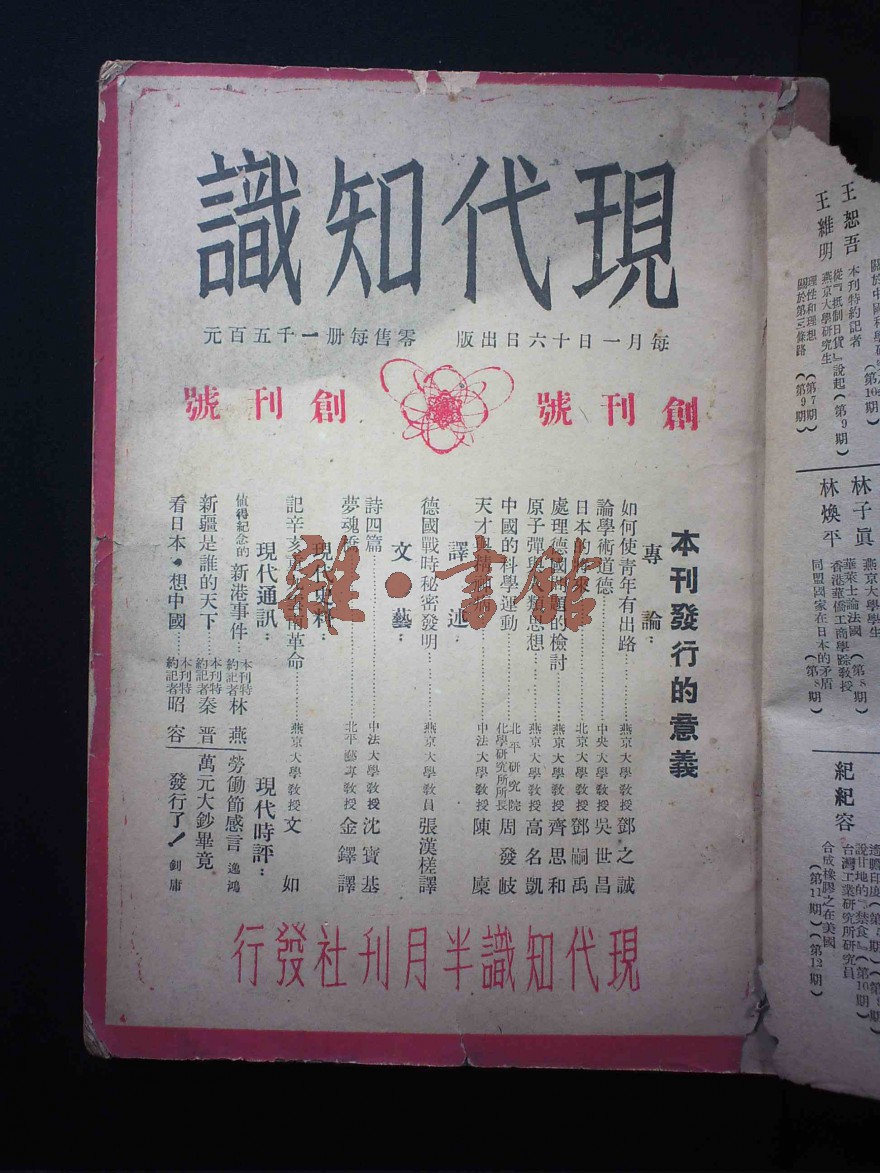 現代知識
每月一日十六日出版 零售每册一千五百元
創刊號 創刊號
本刊發行的意義
專論：
如何使青年有出路……燕京大學教授 鄧之誠
論學術道德……中央大學教授 吳世昌
日本的將來……北京大學教授 鄧嗣禹
處理德國問題的檢討……燕京大學教授 齊思和
原子彈與人類思想……燕京大學教授 高名凱
中國的科學運動……北平研究院化學研究所所長 周發岐
天才與精神病……中法大學教授 陳㢘
譯述：
德國戰時秘密發明……燕京大學教員 張漢槎譯
文藝：
詩四篇……中法大學教授 沈寶基
夢魂橋……北平藝專教授 金鐸譯
現代史料：
記辛亥革命……燕京大學教授 文如
現代通訊：
値得紀念的新港事件…本刊特約記者 林燕
新疆是誰的天下……本刊特約記者 秦晋
看日本•想中國……本刊特約記者 昭容
現代時評：
勞働節感言 逸鴻
萬元大鈔畢竟發行了！ 釗庸
現代知識半月刊社發行
雜•書館
王恕吾
本刊特約記者
從『抵制日貨』說起（第9期）
王維明
燕京大學研究生
理性和理想（第7期）
關於第三條路（第9期）
林子眞
燕京大學學生
華萊士論法國（第8期）
林煥平
香港華僑工商學院教授
同盟國家在日本的矛盾（第8期）
紀紀容
台灣工業研究所研究員
合成橡膠之在美國（第12期）